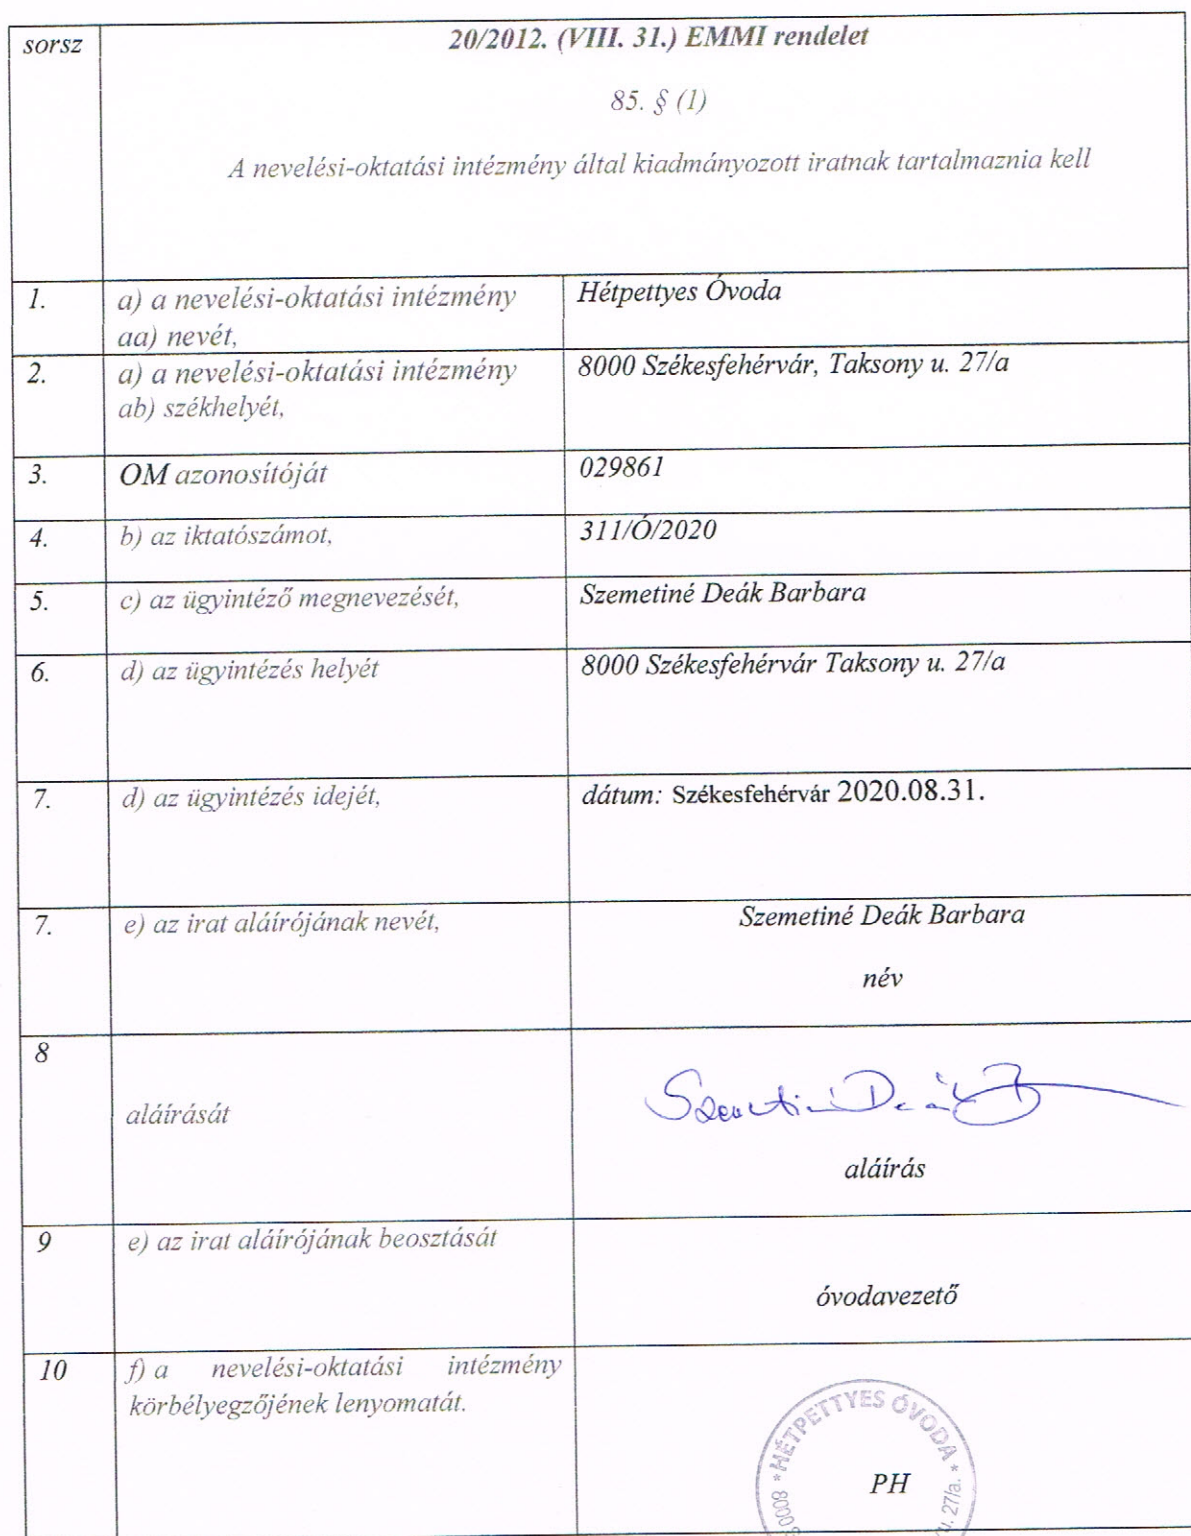 sorsz
20/2012. (VIII. 31.) EMMI rendelet
85. § (1)
A nevelési-oktatási intézmény által kiadmányozott iratnak tartalmaznia kell
1.
a) a nevelési-oktatási intézmény
aa) nevét,
Hétpettyes Óvoda
2.
a) a nevelési-oktatási intézmény
ab) székhelyét,
8000 Székesfehérvár, Taksony u. 27/a
3.
OM azonosítóját
029861
4.
b) az iktatószámot,
311/Ó/2020
5.
c) az ügyintéző megnevezését,
Szemetiné Deák Barbara
6.
d) az ügyintézés helyét
8000 Székesfehérvár Taksony u. 27/a
7.
d) az ügyintézés idejét,
dátum: Székesfehérvár 2020.08.31.
7.
e) az irat aláírójának nevét,
Szemetiné Deák Barbara
név
8
aláírását
Szemetiné Deák B
aláírás
9
e) az irat aláírójának beosztását
óvodavezető
10
f) a nevelési-oktatási intézmény
körbélyegzőjének lenyomatát.
* HÉTPETTYES ÓVODA *
8000
u. 27/a.
PH